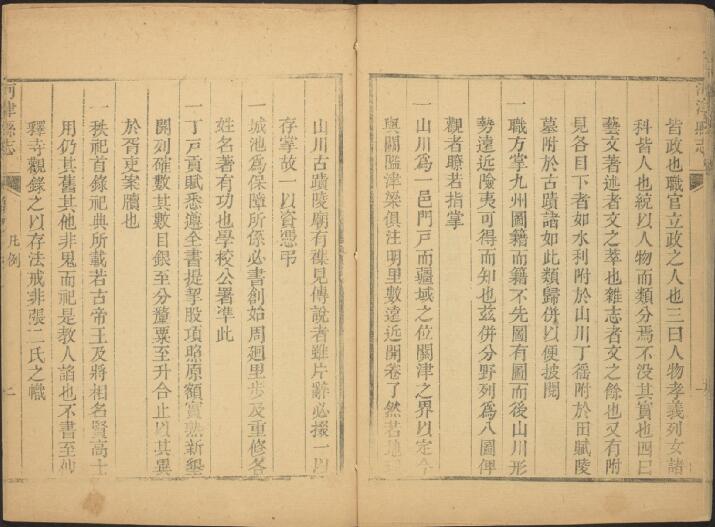 皆政也職官立政之人也三曰人物孝義列女諸
科皆人也統以人物而類分焉不没其實也四曰
藝文著述者文之萃也雜志者文之餘也又有附
見各目下者如水利附於山川丁徭附於田賦陵
墓附於古蹟諸如此類歸併以便披閱
一職方掌九州圖籍而籍不先圖有圖而後山川形
勢遠近險夷可得而知也兹併分野列爲八圖俾
觀者瞭若指掌
一山川爲一邑門戸而疆域之位關津之界以定今
與關隘津梁俱注明里數遠近開卷了然若
山川古蹟陵廟有襍見傳說者雖片辭必掇一以
存掌故一以資憑弔
一城池爲保障所係必書創始周廻里步及重修各
姓名著有功也學校公署準此
一丁戸貢賦悉遵全書提挈股項照原額實熟新墾
開列確數其數目銀至分釐粟至升合止以其異
於胥吏案牘也
一秩祀首錄祀典所載若古帝王及將相名賢高士
用仍其舊其他非鬼而祀是教人諂也不書至仙
釋寺觀錄之以存法戒非張二氏之幟
河津縣志
凡例
一
河津縣志